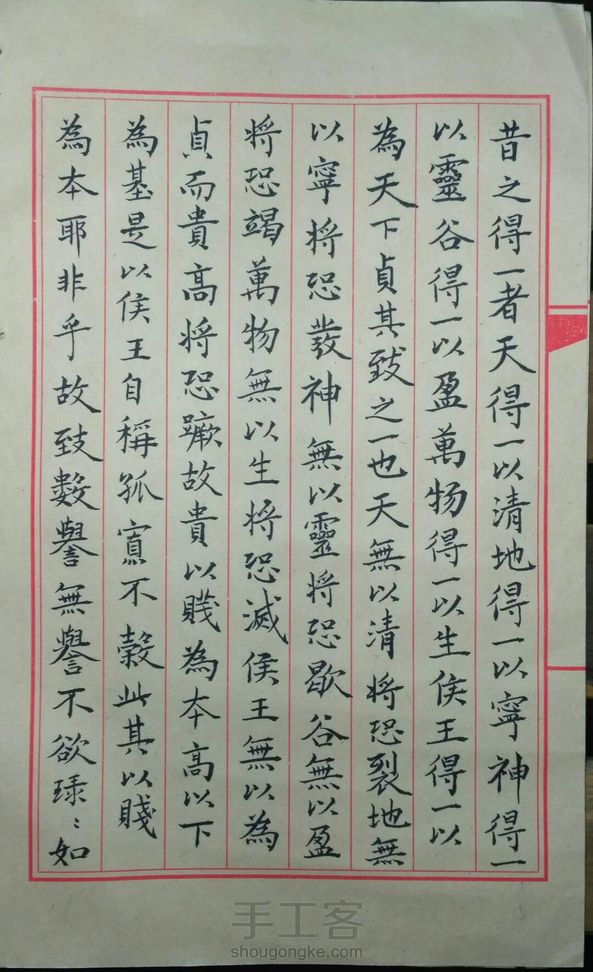 昔之得一者天得一以清地得一以寧神得一
以靈谷得一以盈萬物得一以生侯王得一以
為天下貞其致之一也天無以清將恐裂地無
以寧將恐發神無以靈將恐歇谷無以盈
將恐竭萬物無以生將恐滅侯王無以為
貞而貴高將恐蹶故貴以賤為本高以下
為基是以侯王自稱孤寡不穀此其以賤
為本耶非乎故致數譽無譽不欲琭〻如
手工客
shougongke.com